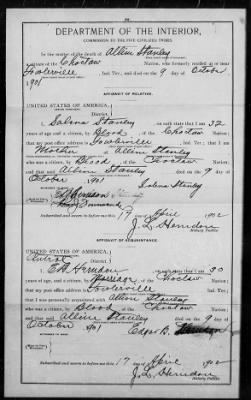 DEPARTMENT OF THE INTERIOR,
COMMISSION TO THE FIVE CIVILIZED TRIBES.
In the matter of the death of Alline Stanley
a citizen of the Choctaw Nation, who formerly resided at or near
Fowlerville Ind. Ter., and died on the 9 day of October
1901
AFFIDAVIT OF RELATIVE.
UNITED STATES OF AMERICA,
INDIAN TERRITORY,
District.
I, Salena Stanley on oath state that I am 32
years of age and a citizen, by Blood of the Choctaw Nation;
that my post office address is Fowlerville Ind. Ter.; that I am
Mother of Alline Stanley
who was a citizen, by Blood of the Choctaw Nation;
and that said Alline Stanley died on the 9 day of
October 1901
Salena Stanley
Subscribed and sworn to before me this 17 day of April 1902
J. L. Herndon
Notary Public.
AFFIDAVIT OF ACQUAINTANCE.
UNITED STATES OF AMERICA,
INDIAN TERRITORY,
District.
I, E B Herndon on oath state that I am 30
years of age, and a citizen by Marriage of the Choctaw Nation;
that my post office address is Fowlerville Ind. Ter.;
that I was personally acquainted with Alline Stanley
who was a citizen, by Blood of the Choctaw Nation;
and that said Alline Stanley died on the 9 day of
October 1901
Edgar B. Herndon
Subscribed and sworn to before me this 17 day of April 1902
J. L. Herndon
Notary Public.